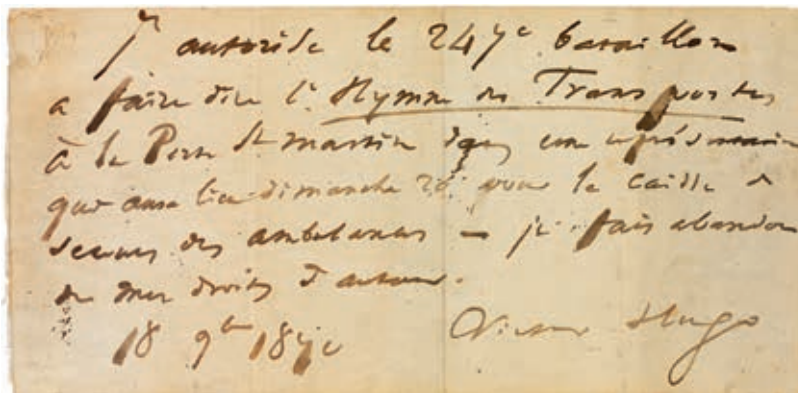 J'autorise le 247e bataillon
a faire dire l'Hymne des Transportés
à la Porte St martin dans une représentation
qui aura lieu dimanche 20 pour la caisse de
secours des ambulances — je fais abandon
de mes droits d'auteur.
18 9bre 1870 Victor Hugo